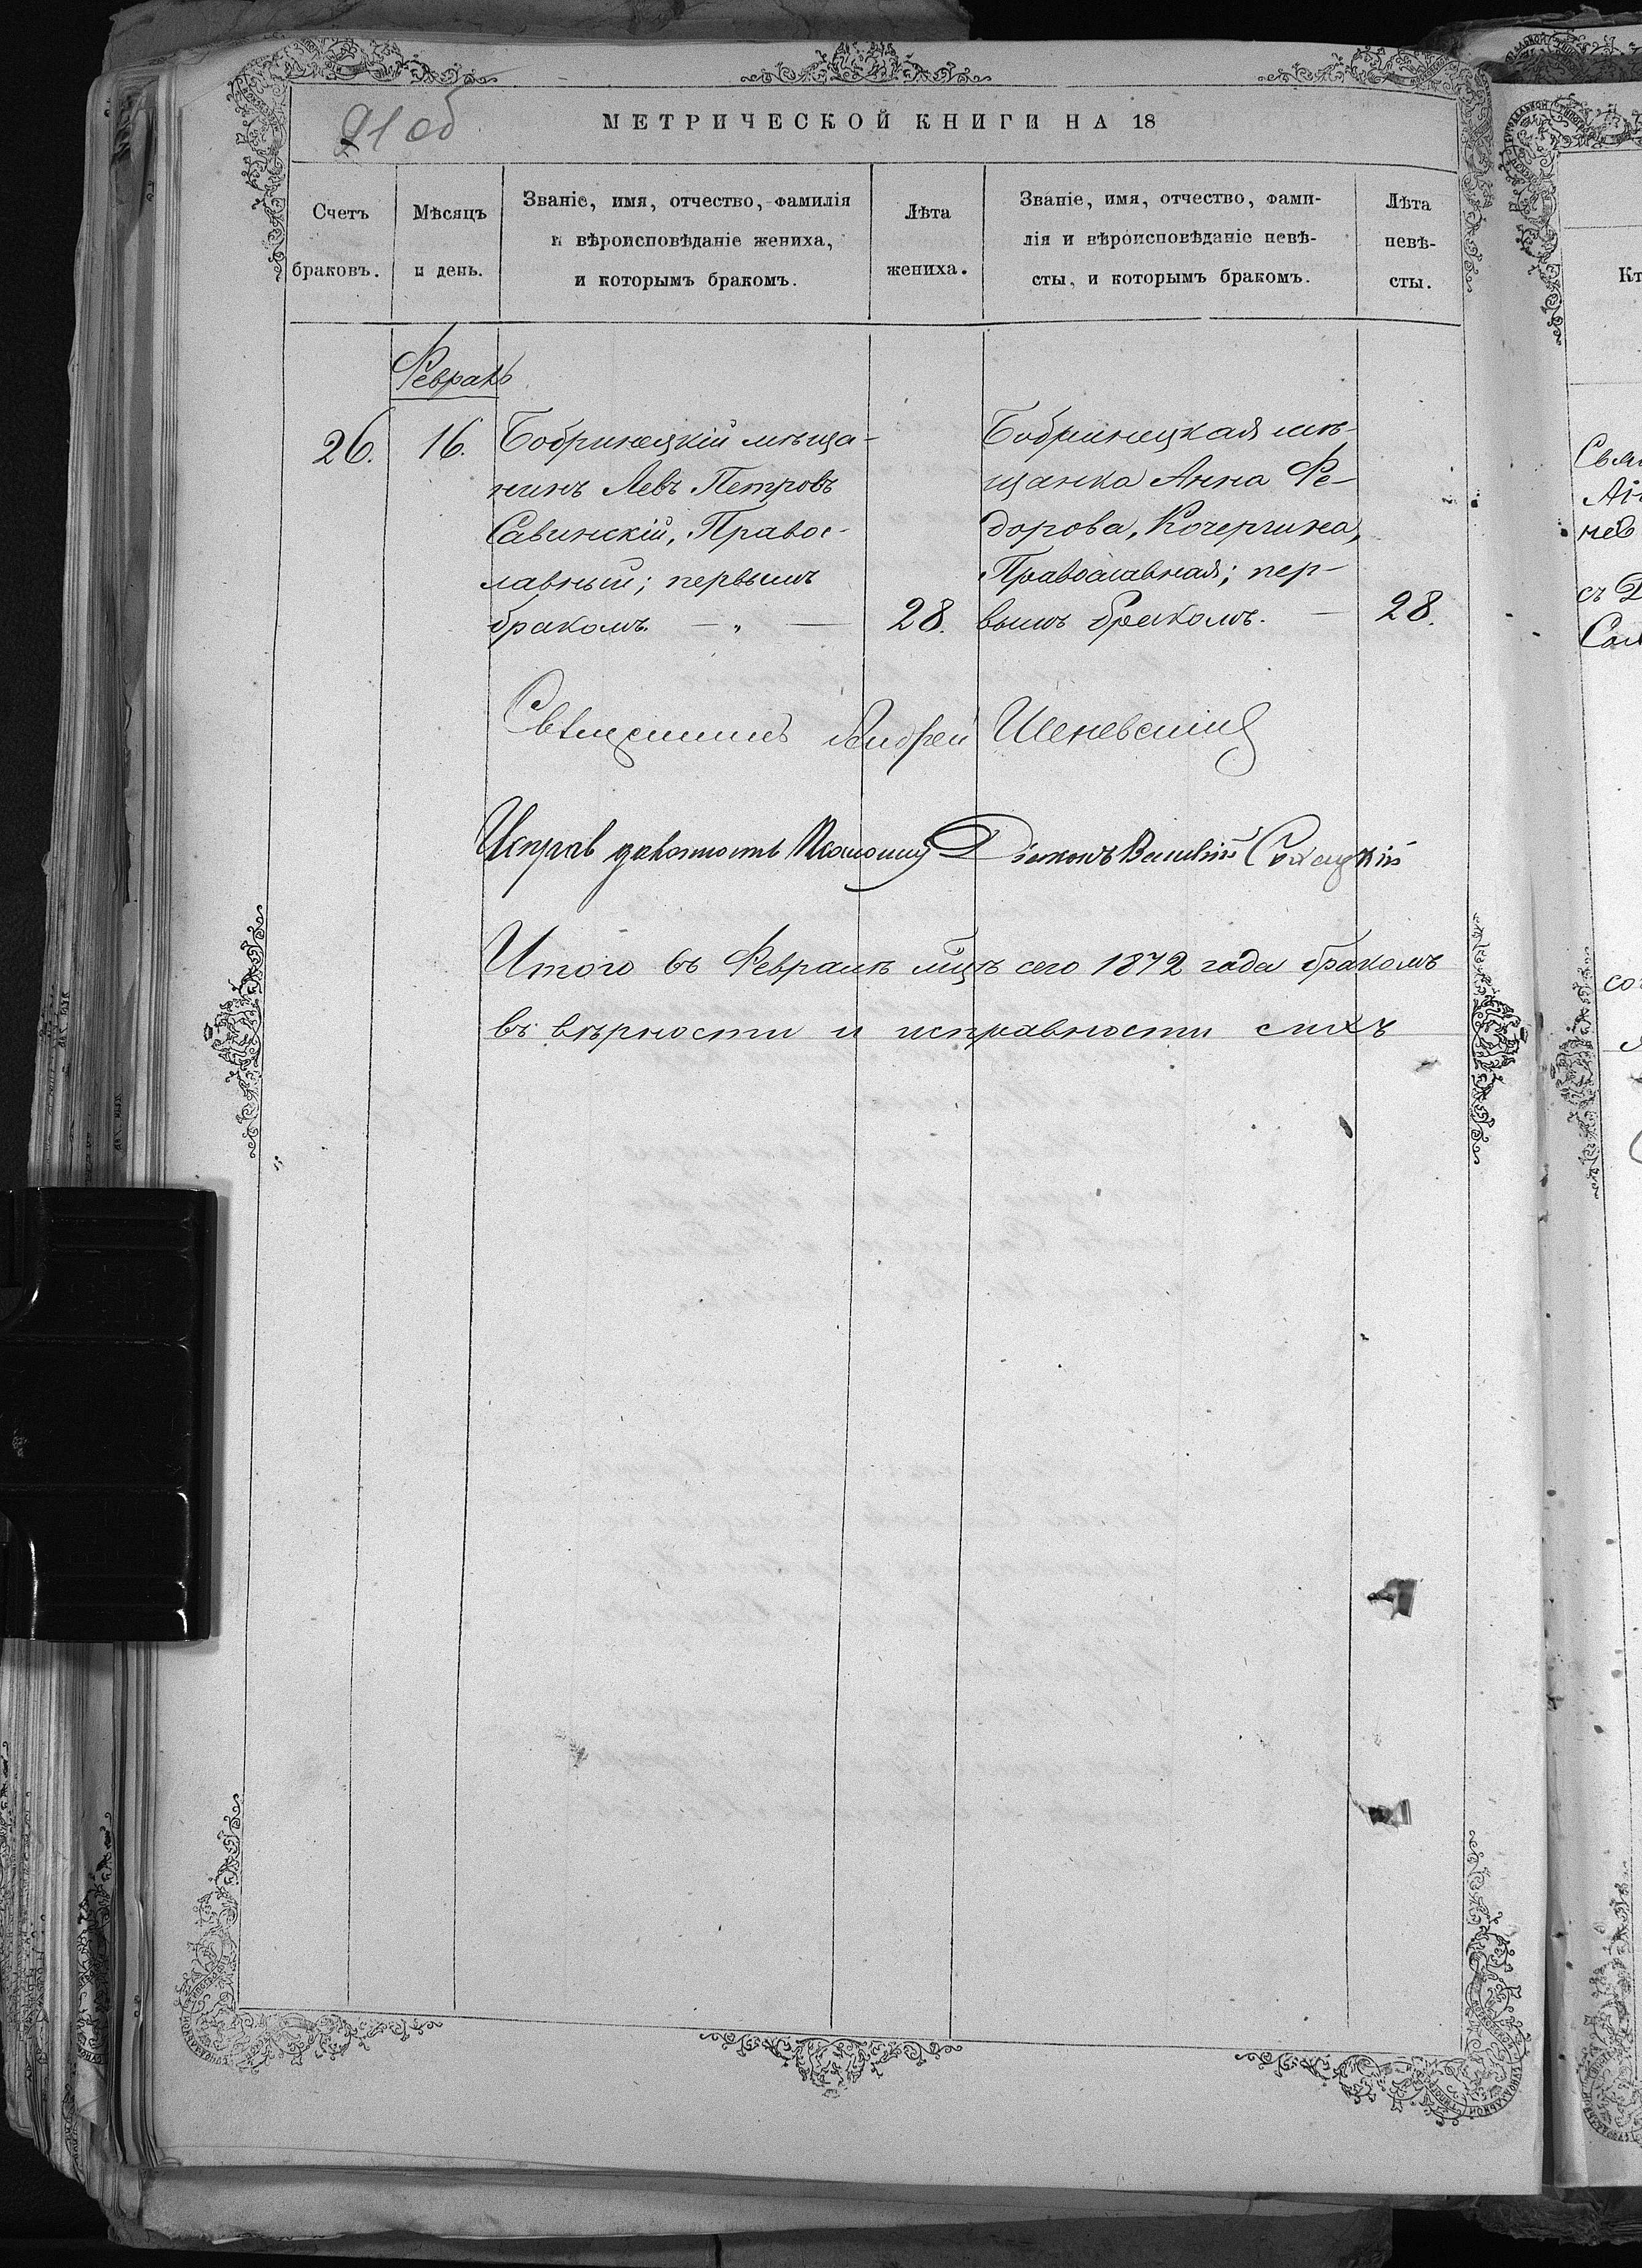 91 об
МЕТРИЧЕСКОЙ КНИГИ НА 18
Счетъ браковъ.
Мѣсяцъ и день.
Званіе, имя, отчество, фамилія
и вѣроисповѣданіе жениха,
и которымъ бракомъ.
Лѣта жениха.
Званіе, имя, отчество, фами-
лія и вѣроисповѣданіе невѣ-
сты, и которымъ бракомъ.
Лѣта невѣ-
сты.
Февраль
26.
16.
Бобринецкій мѣща-
нинъ Левъ Петровъ
Савинскій, Правос-
лавный; первымъ
бракомъ. — „ —
28.
Бобринецкая мѣ-
щанка Анна Фе-
дорова, Кочергина,
Православная; пер-
вымъ бракомъ. —
28.
Священникъ Андрей
Исправ должность Псаломщ Діаконъ Василій
Итого въ Февралѣ мцѣ сего 1872 года бракомъ
въ вѣрности и исправности сихъ
Кт
нев
съ